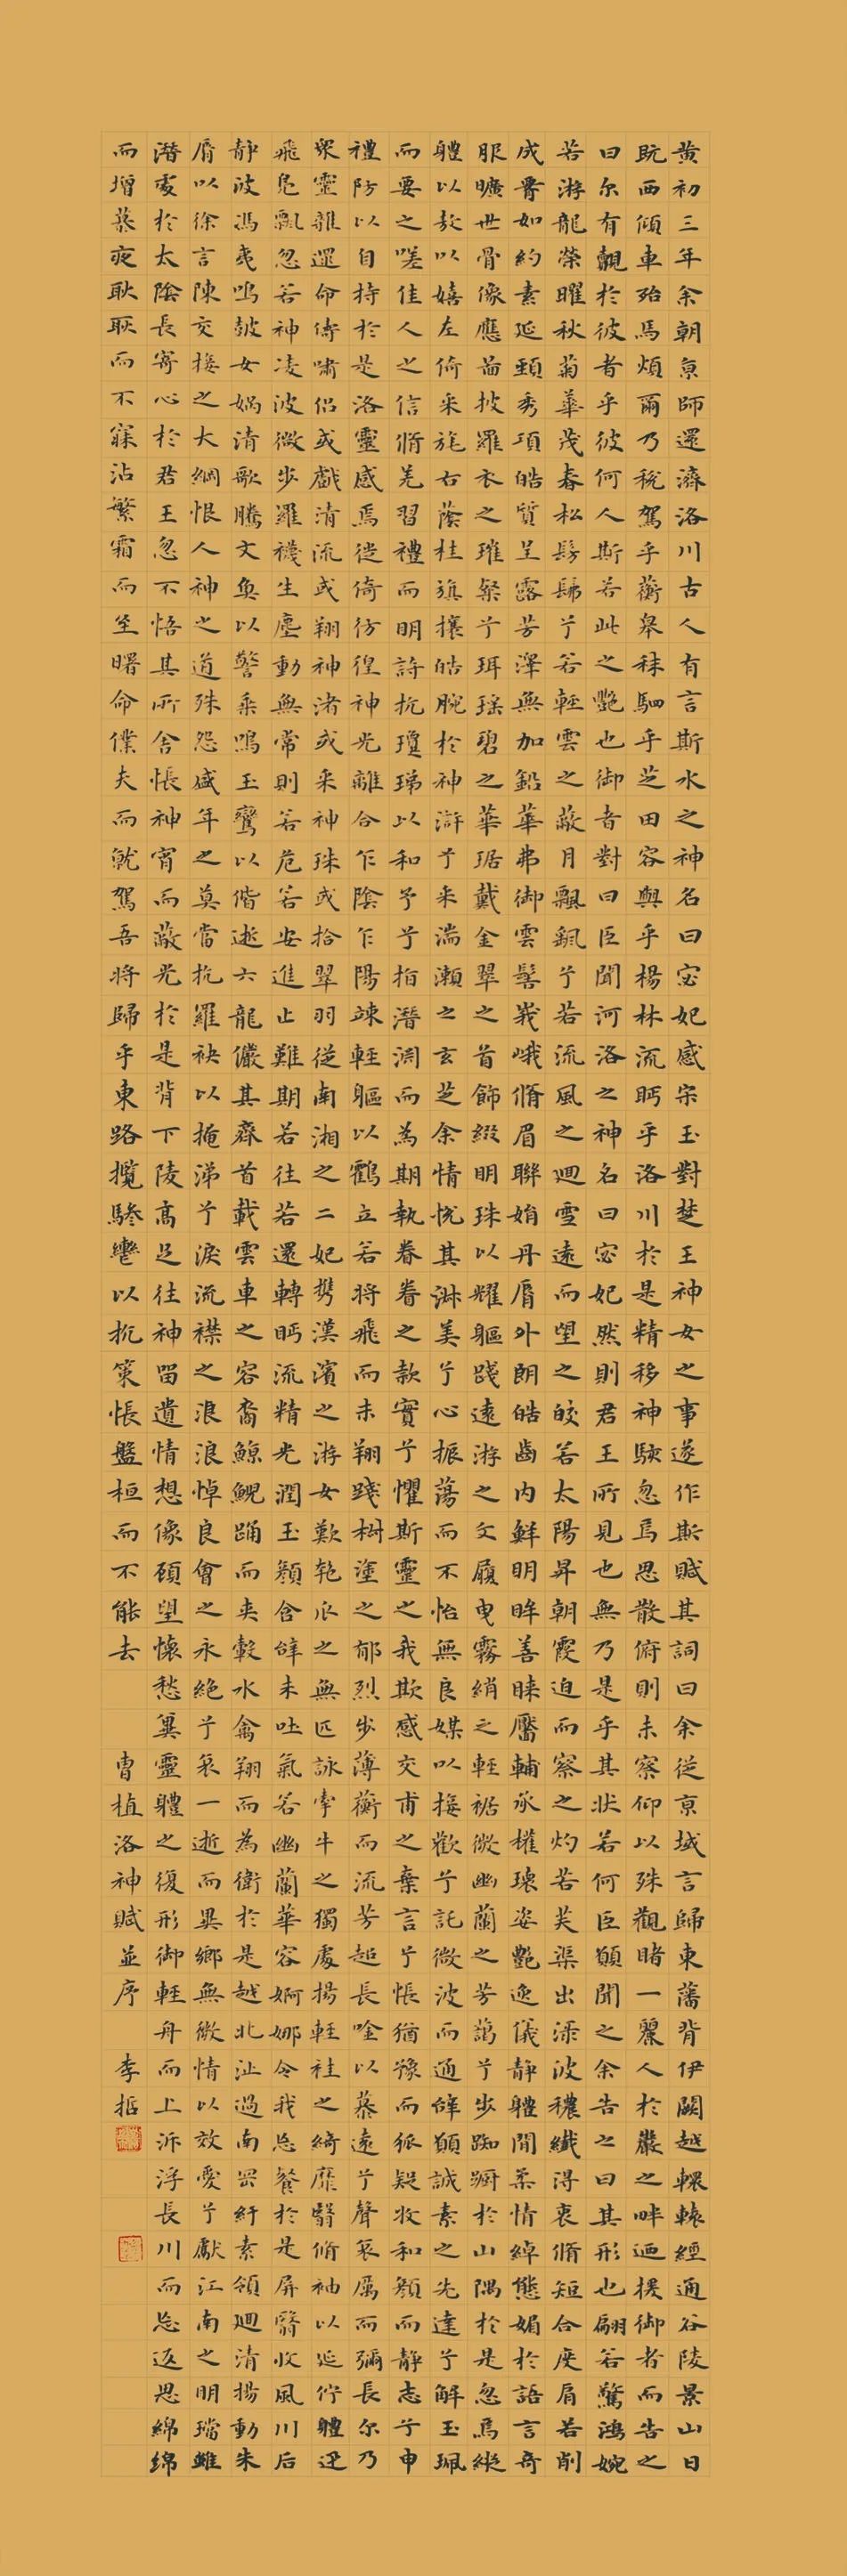 黃初三年余朝京師還濟洛川古人有言斯水之神名曰宓妃感宋玉對楚王神女之事遂作斯賦其詞曰余從京域言歸東藩背伊闕越轘轅經通谷陵景山日
既西傾車殆馬煩爾乃稅駕乎蘅皋秣駟乎芝田容與乎楊林流眄乎洛川於是精移神駭忽焉思散俯則未察仰以殊觀睹一麗人於巖之畔迺援御者而告之
曰尔有覿於彼者乎彼何人斯若此之艷也御者對曰臣聞河洛之神名曰宓妃然則君王所見也無乃是乎其狀若何臣願聞之余告之曰其形也翩若驚鴻婉
若游龍榮曜秋菊華茂春松髣髴兮若輕雲之蔽月飄颻兮若流風之迴雪遠而望之皎若太陽昇朝霞迫而察之灼若芙渠出淥波穠纖得衷脩短合度肩若削
成腰如約素延頸秀項皓質呈露芳澤無加鉛華弗御雲髻峩峨脩眉聯娟丹脣外朗皓齒內鮮明眸善睞靨輔承權瓌姿艷逸儀靜體閒柔情綽態媚於語言奇
服曠世骨像應圖披羅衣之璀粲兮珥瑤碧之華琚戴金翠之首飾綴明珠以耀軀踐遠游之文履曳霧綃之輕裾微幽蘭之芳藹兮步踟躕於山隅於是忽焉縱
體以敖以嬉左倚采旄右蔭桂旗攘皓腕於神滸兮采湍瀨之玄芝余情悅其淑美兮心振蕩而不怡無良媒以接歡兮託微波而通辭願誠素之先達兮解玉珮
而要之嗟佳人之信脩羌習禮而明詩抗瓊珶以和予兮指潛淵而為期執眷眷之款實兮懼斯靈之我欺感交甫之棄言兮悵猶豫而狐疑收和顏而靜志兮申
禮防以自持於是洛靈感焉徙倚彷徨神光離合乍陰乍陽竦輕軀以鶴立若將飛而未翔踐椒塗之郁烈步薄蘅而流芳超長唫以慕遠兮聲哀厲而彌長尔乃
眾靈雜遝命儔嘯侶或戲清流或翔神渚或采神珠或拾翠羽從南湘之二妃攜漢濱之游女歎匏瓜之無匹詠牽牛之獨處揚輕袿之綺靡翳脩袖以延佇體迅
飛鳧飄忽若神凌波微步羅襪生塵動無常則若危若安進止難期若往若還轉眄流精光潤玉顏含辭未吐氣若幽蘭華容婀娜令我忘餐於是屏翳收風川后
靜波馮夷鳴鼓女媧清歌騰文魚以警乘鳴玉鸞以偕逝六龍儼其齊首載雲車之容裔鯨鯢踊而夾轂水禽翔而為衛於是越北沚過南岡紆素領迴清揚動朱
脣以徐言陳交接之大綱恨人神之道殊怨盛年之莫當抗羅袂以掩涕兮淚流襟之浪浪悼良會之永絕兮哀一逝而異鄉無微情以效愛兮獻江南之明璫雖
潛處於太陰長寄心於君王忽不悟其所舍悵神宵而蔽光於是背下陵高足往神留遺情想像顧望懷愁冀靈體之復形御輕舟而上泝浮長川而忘返思綿綿
而增慕夜耿耿而不寐沾繁霜而至曙命僕夫而就駕吾將歸乎東路攬驂轡以抗策悵盤桓而不能去 曹植洛神賦並序 李哲